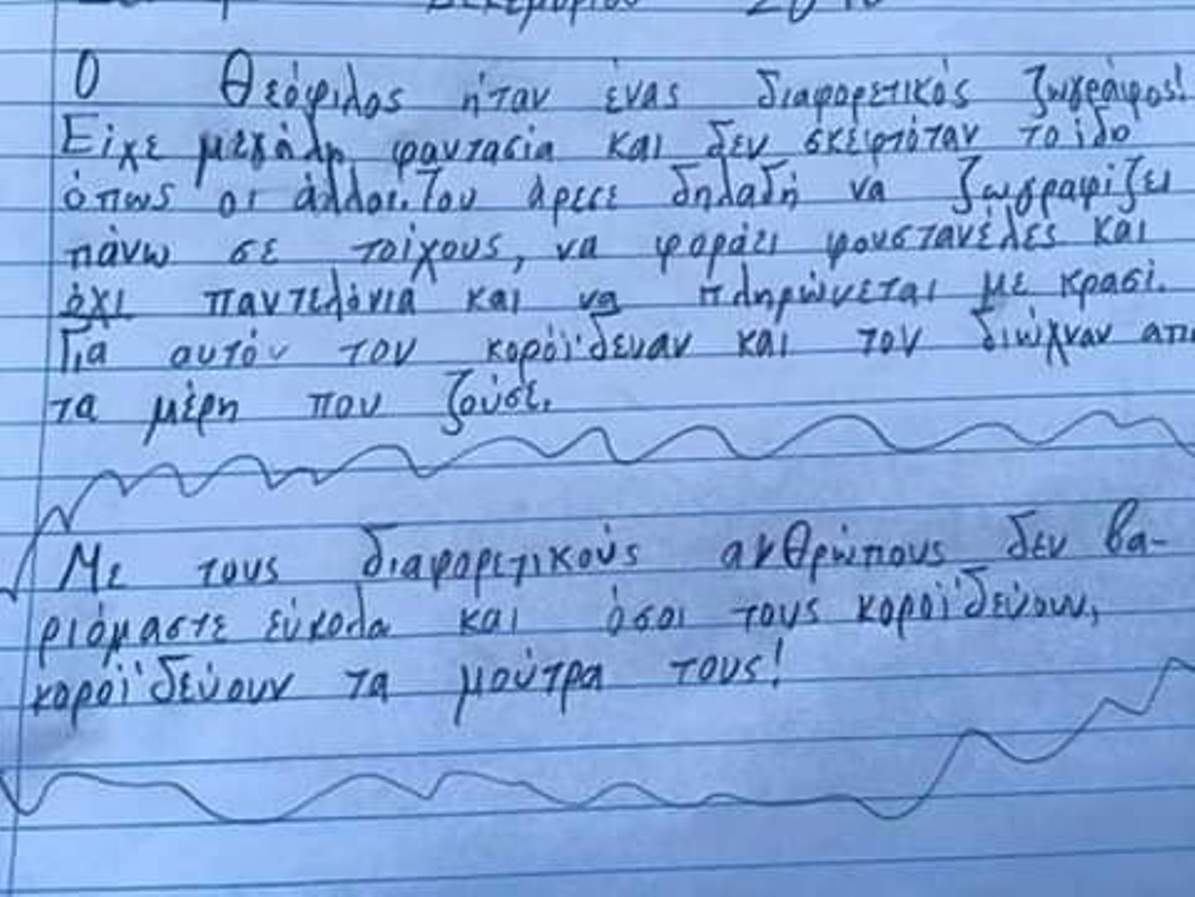 Δεκεμβρίου
Ο Θεόφιλος ήταν ένας διαφορετικός ζωγράφος!
Είχε μεγάλη φαντασία και δεν σκεφτόταν το ίδο
όπως οι άλλοι. Του άρεσε δηλαδή να ζωγραφίζει
πάνω σε τοίχους, να φοράει φουστανέλες και
όχι παντελόνια και να πληρώνεται με κρασί.
Για αυτόν τον κορόϊδευαν και τον διώχναν απ
τα μέρη που ζούσε.
Με τους διαφορετικούς ανθρώπους δεν βα-
ριόμαστε εύκολα και όσοι τους κοροϊδεύουν,
κοροϊδεύουν τα μούτρα τους!